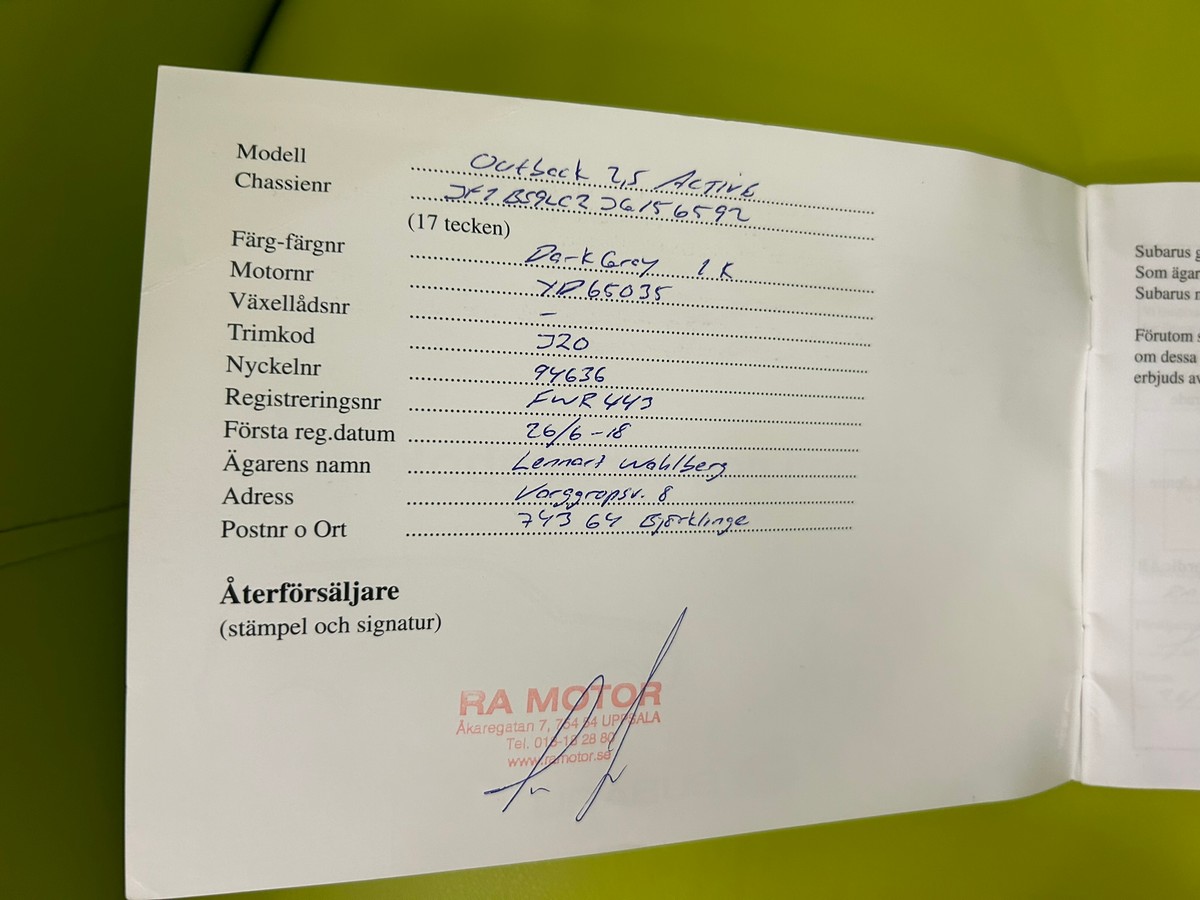 Modell Outback 2,5 ACTIVE
Chassienr JF1BS9LC2JG156592
(17 tecken)
Färg-färgnr Dark Gray 1K
Motornr YD65035
Växellådsnr -
Trimkod J20
Nyckelnr 94636
Registreringsnr FWR443
Första reg.datum 26/6-18
Ägarens namn Lennart Wahlberg
Adress Varggropsv. 8
Postnr o Ort 743 64 Björklinge
Återförsäljare
(stämpel och signatur)
RA MOTOR
Åkaregatan 7, 754 54 UPPSALA
Tel. 018-18 28 80
www.ramotor.se
Subarus
Som ägar
Subarus
Förutom
om dessa
erbjuds av